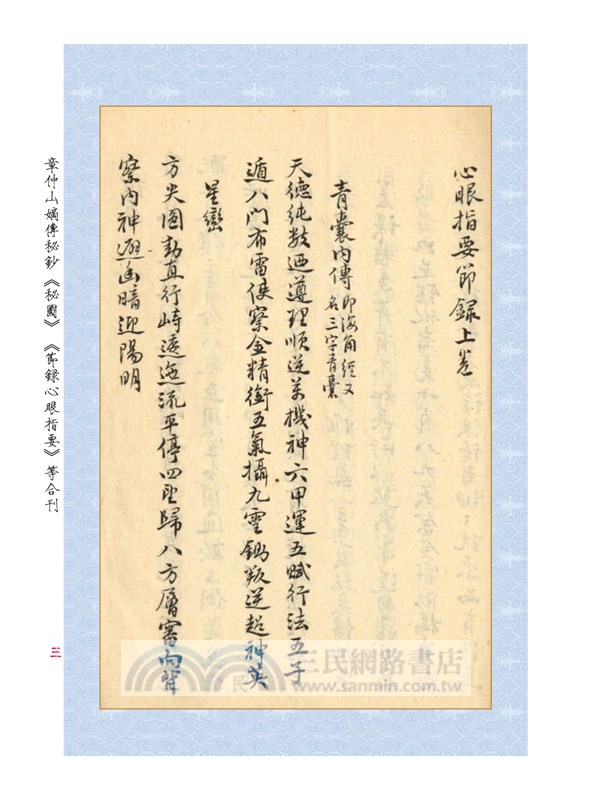 心眼指要節錄上卷
青囊內傳即海角經又
名三字青囊
天德純數迺遵理順逆萬機神六甲運五賦行法五子
遁八門布雷使察金精銜五氣攝九霊鍋叛逆起神英
星巒
方尖圓動直行峙逶迤流平停四正歸八方屬審向背
察內神避幽暗迎陽明
章仲山嫡傳秘鈔《秘圖》《節錄心眼指要》等合刊
三
三民網路書店
www.sanmin.com.tw